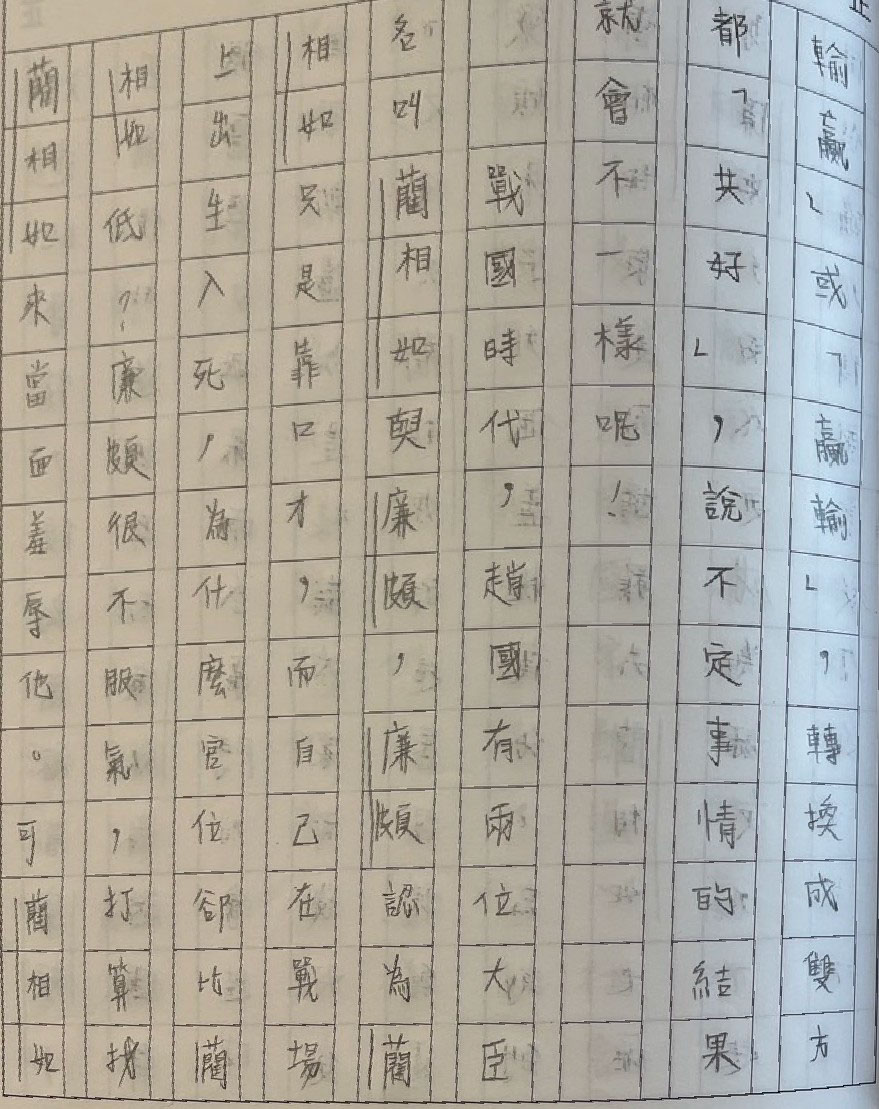 輸贏」或「贏輸」，轉換成雙方
都「共好」，說不定事情的結果
就會不一樣呢！
戰國時代，趙國有兩位大臣
名叫藺相如與廉頗，廉頗認為藺
相如只是靠口才，而自己在戰場
上出生入死，為什麼官位卻比藺
相如低，廉頗很不服氣，打算找
藺相如來當面羞辱他。可藺相如